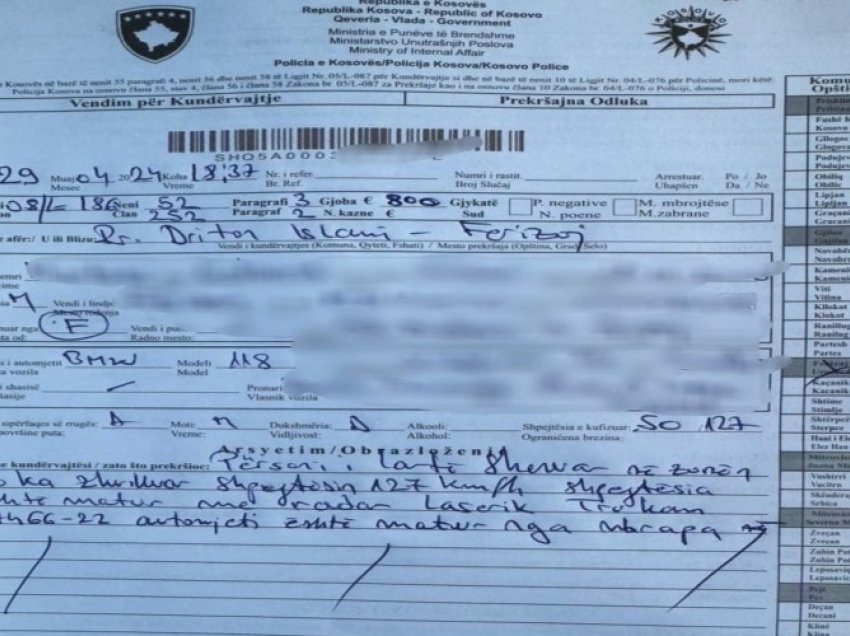 Republika e Kosovës
Republika Kosova - Republic of Kosovo
Qeveria - Vlada - Government
Ministria e Punëve të Brendshme
Ministarstvo Unutrašnjih Poslova
Ministry of Internal Affair
Policia e Kosovës/Policija Kosova/Kosovo Police
e Kosovës në bazë të nenit 55 paragrafi 4, nenit 56 dhe nenit 58 të Ligjit Nr. 05/L-087 për Kundërvajtje si dhe në bazë të nenit 10 të Ligjit Nr. 04/L-076 për Policinë, mori këtë
Policija Kosova na osnovu člana 55, stav 4, člana 56 i člana 58 Zakona br. 05/L-087 za Prekršaje kao i na osnovu člana 10 Zakona br. 04/L-076 o Policiji, donosi
Vendim për Kundërvajtje Prekršajna Odluka
SHQ5A000
29 Muaj 04 2024 Koha 18:37 Nr. i refer. Numri i rastit. Arrestuar. Po / Jo
Mesec Vreme Br. Ref. Broj Slučaj Uhapšen Da / Ne
08/L 186 Neni 52 Paragrafi 3 Gjoba € 800 Gjykatë P. negative M. mbrojtëse
Clan 252 Paragraf 2 N. kazne € Sud N. poene M.zabrane
afër:/ U ili Blizu: Rr. Driton Islami - Ferizaj
Vendi i kundërvajtjes (Komuna, Qyteti, Fshati) / Mesto prekršaja (Opština, Grad, Selo)
emri
ime
M Vendi i lindjes
Mesto rođenja
uar nga F Vendi i pun.
ta od: Radno mesto:
i i automjetit BMW Modeli 118
a vozila Model
i shasisë Pronari
šasije Vlasnik vozila
sipërfaqes së rrugës: A Moti: n Dukshmëria: D Alkooli: Shpejtësia e kufizuar: 50 127
površine puta: Vreme: Vidljivost: Alkohol: Ograničena brzina:
Arsyetim/Obrazloženje
e kundërvajtësi / zato što prekršioc: Personi i lartë shenuar në zonën
ka zhvilluar shpejtësin 127 km/h shpejtësia
është matur me radar Laserik Trukam
466-22 automjeti është matur nga mbrapa
Komu
Opštin
Prishtin
Pristina
Fushë K
Kosovo
Gllogoc
Glogova
Podujev
Podujev
Obiliq
Obilic
Lipjan
Lipljan
Graçani
Gračani
Gjilan
Gnjilan
Novobër
Novobrd
Kamenic
Kamenic
Viti
Vitina
Kllokot
Klokot
Ranillug
Ranilug
Partesh
Partes
Kaçanik
Kacanik
Shtime
Stimlje
Shtërpcë
Sterpce
Hani i El
Elez Han
Mitrovic
Vushtrri
Vucitrn
Skënderaj
Srbica
Mitrovic
Zveçan
Zvecan
Zubin Pot
Zubin Pot
Leposaviq
Leposavic
Pejë
Pec
Deçan
Decani
Klinë
Klina